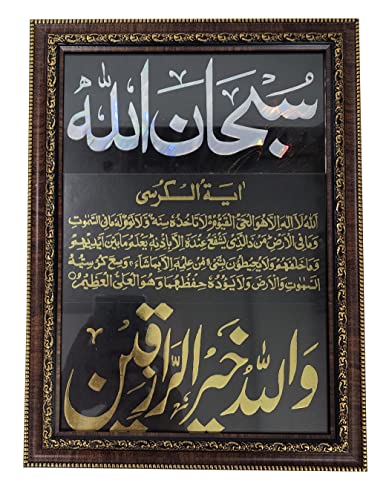 سُبْحَانَ اللّٰه
اٰيةُ الكرسى
اَللّٰهُ لَا اِلٰهَ اِلَّا هُوَ الْحَىُّ الْقَيُّوْمُ لَا تَاْخُذُهٗ سِنَةٌ وَّلَا نَوْمٌ لَهٗ مَا فِى السَّمٰوٰتِ
وَمَا فِى الْاَرْضِ مَنْ ذَا الَّذِىْ يَشْفَعُ عِنْدَهٗ اِلَّا بِاِذْنِهٖ يَعْلَمُ مَا بَيْنَ اَيْدِيْهِمْ
وَمَا خَلْفَهُمْ وَلَا يُحِيْطُوْنَ بِشَىْءٍ مِّنْ عِلْمِهٖ اِلَّا بِمَا شَآءَ وَسِعَ كُرْسِيُّهُ
السَّمٰوٰتِ وَالْاَرْضَ وَلَا يَـُٔوْدُهٗ حِفْظُهُمَا وَهُوَ الْعَلِىُّ الْعَظِيْمُ
وَاللّٰهُ خَيْرُ الرَّازِقِيْنَ